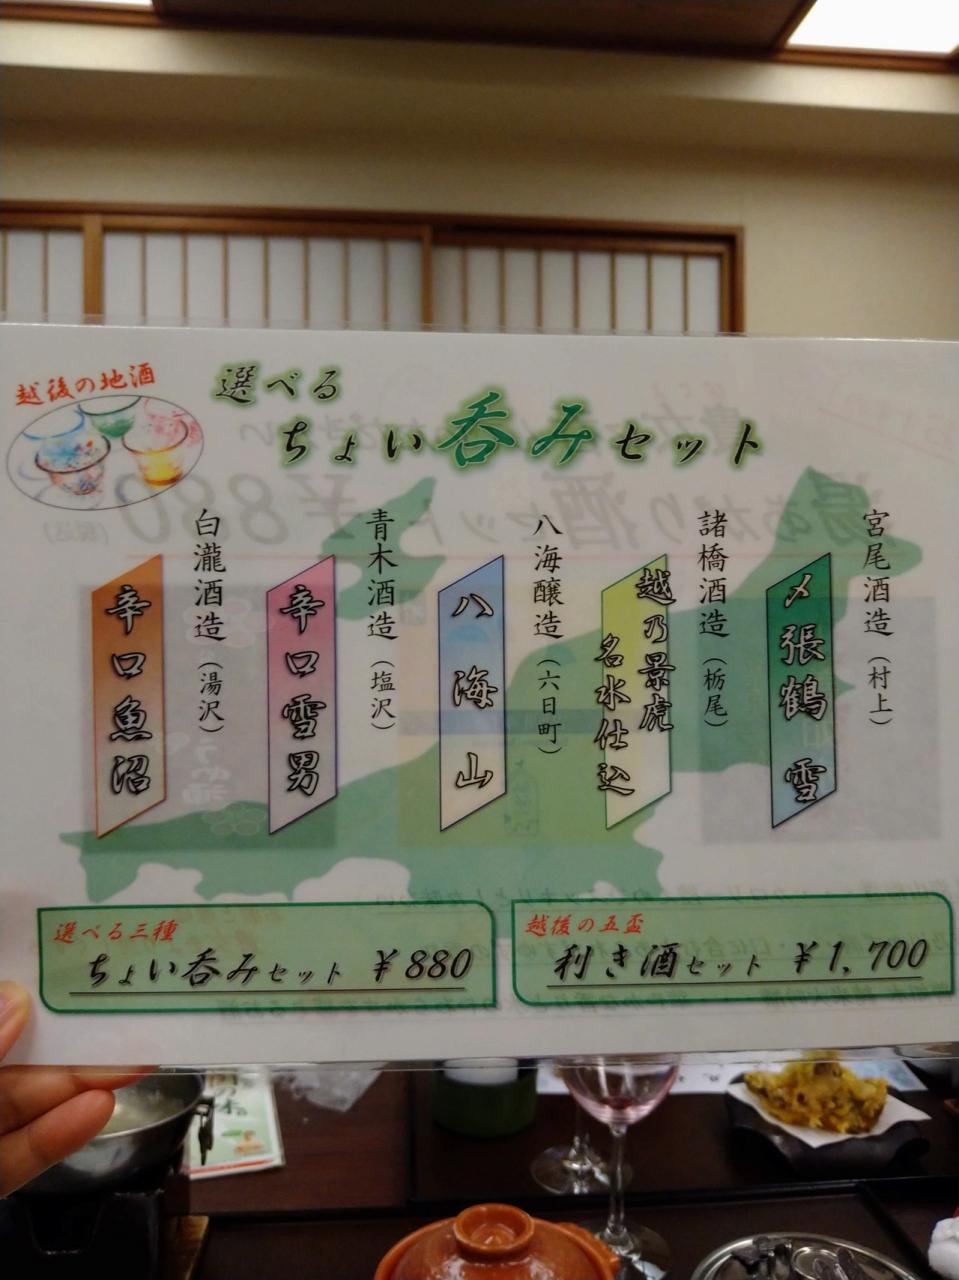 越後の地酒
選べる
ちょい呑みセット
宮尾酒造（村上）
〆張鶴 雪
諸橋酒造（栃尾）
越乃景虎
名水仕込
八海醸造（六日町）
八海山
青木酒造（塩沢）
辛口雪男
白瀧酒造（湯沢）
辛口魚沼
選べる三種
ちょい呑みセット ￥880
越後の五盃
利き酒セット ￥1,700